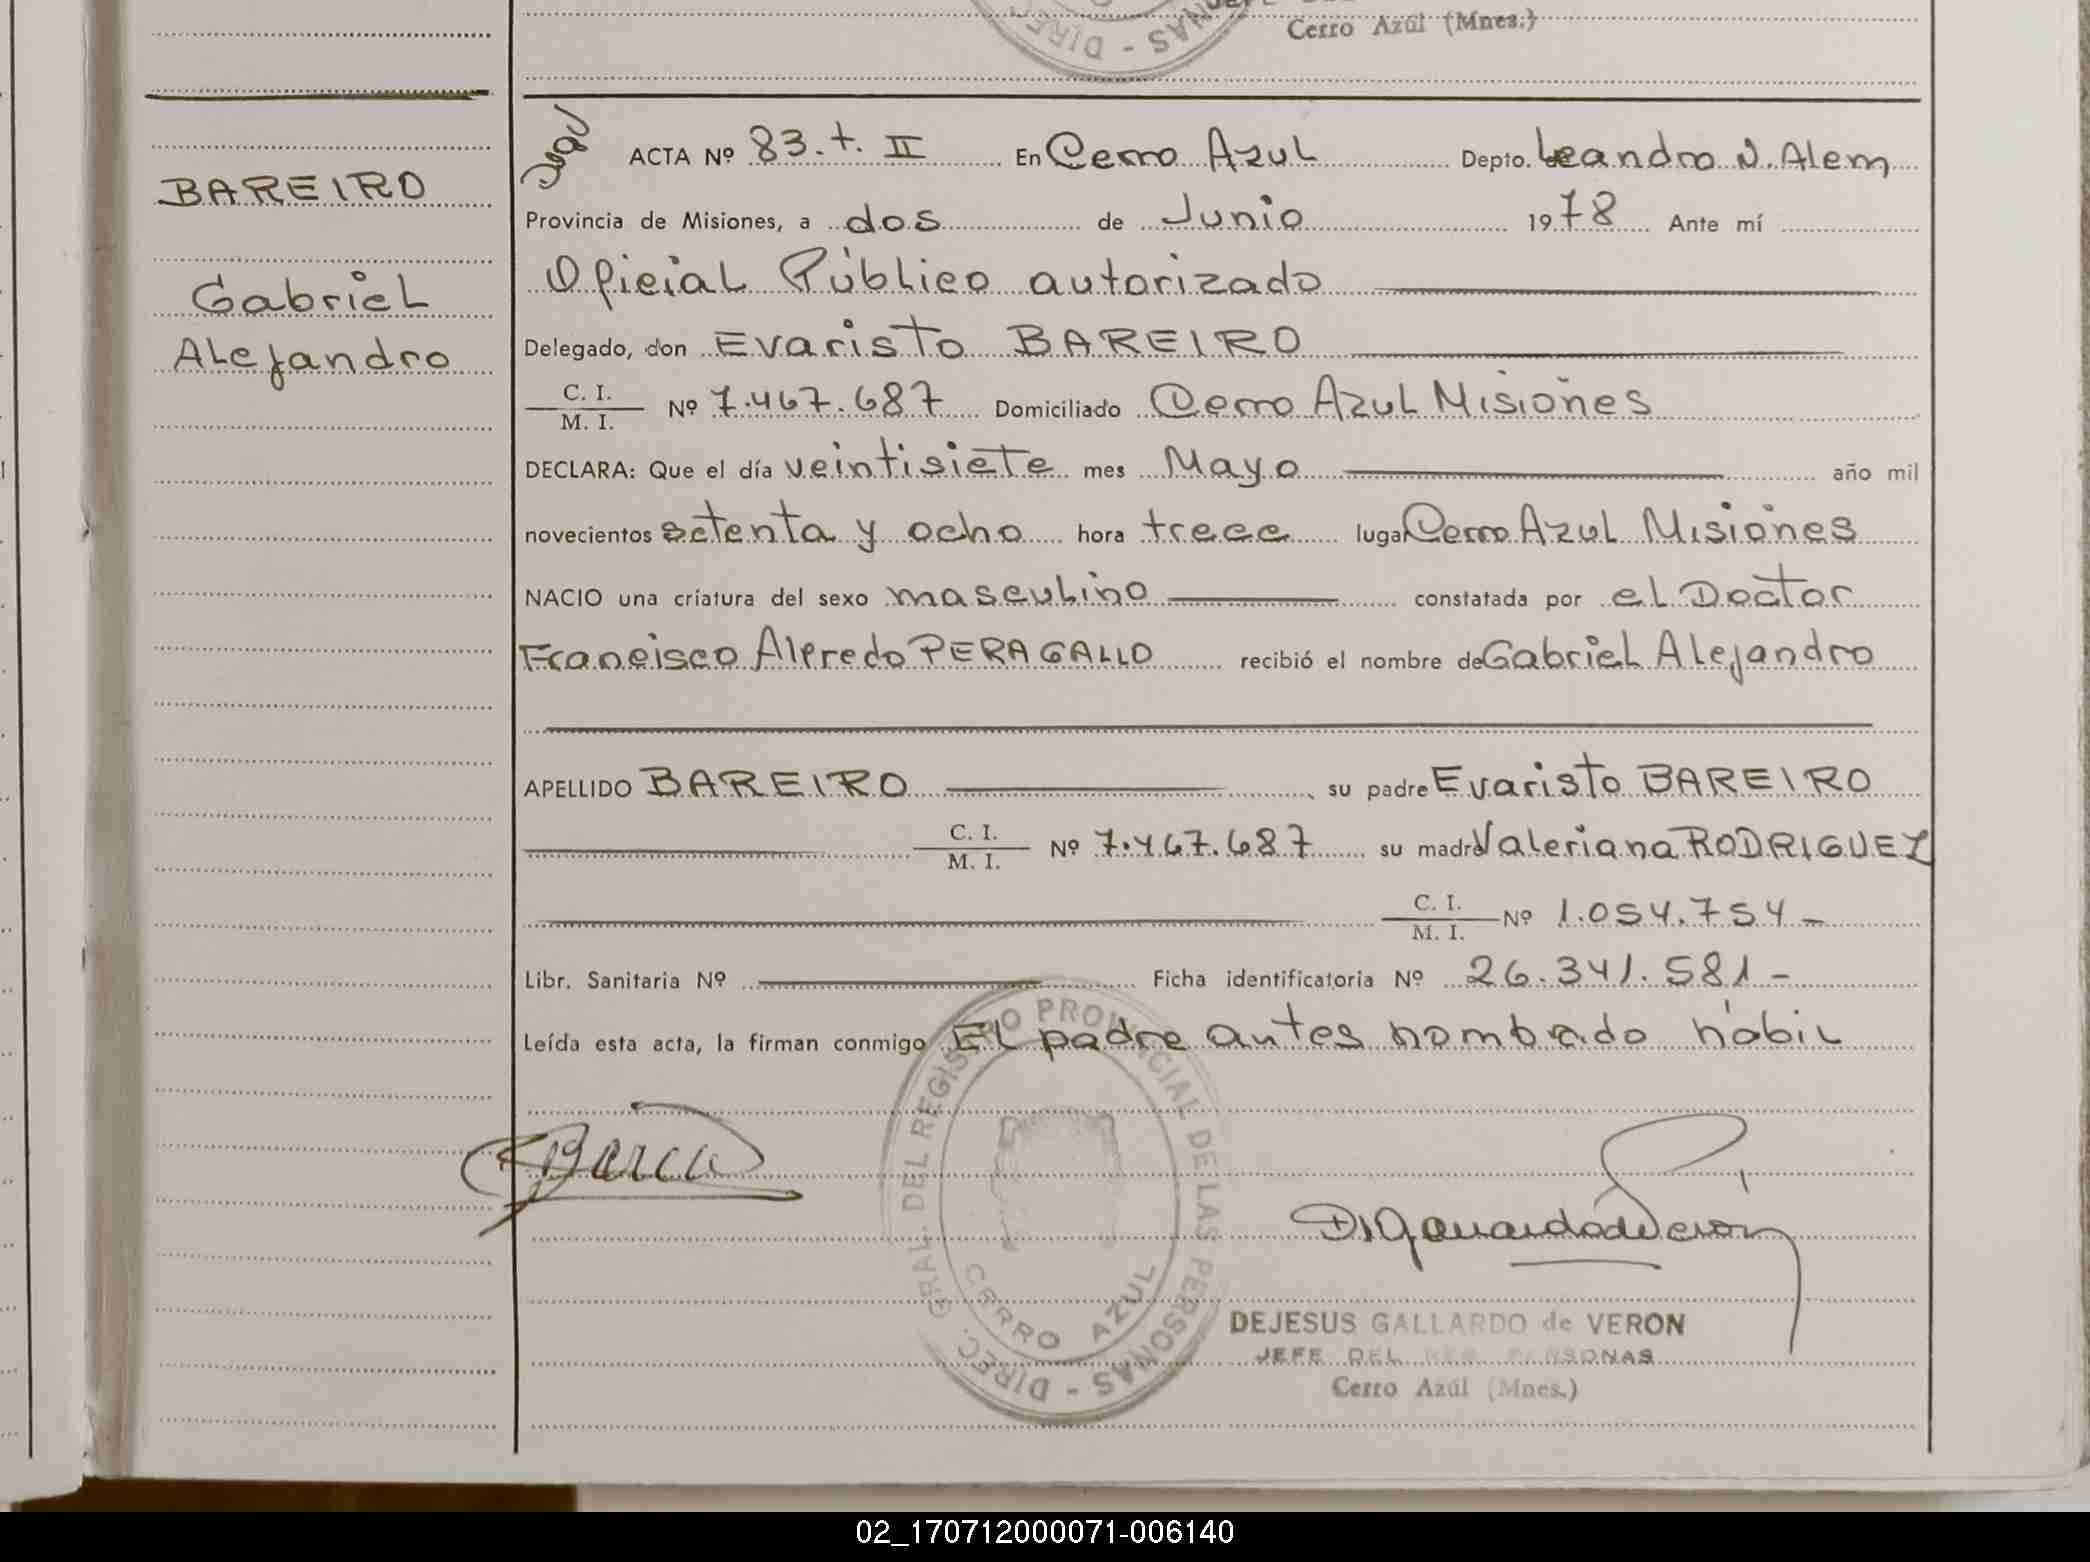 Cerro Azúl (Mnes.)
BAREIRO
Gabriel
Alejandro
ACTA Nº 83.t. II En Cerro Azul Depto. Leandro N. Alem
Provincia de Misiones, a dos de Junio 1978 Ante mí
Oficial Público autorizado
Delegado, don Evaristo BAREIRO
C. I.
M. I. Nº 7.467.687 Domiciliado Cerro Azul Misiones
DECLARA: Que el día veintisiete mes Mayo año mil
novecientos setenta y ocho hora trece lugar Cerro Azul Misiones
NACIO una criatura del sexo masculino constatada por el Doctor
Francisco Alfredo PERAGALLO recibió el nombre de Gabriel Alejandro
APELLIDO BAREIRO, su padre Evaristo BAREIRO
C. I.
M. I. Nº 7.467.687 su madre Valeriana RODRIGUEZ
C. I.
M. I. Nº 1.054.754-
Libr. Sanitaria Nº Ficha identificatoria Nº 26.341.581-
Leída esta acta, la firman conmigo El padre antes nombrado hábil
DIREC. GRAL. DEL REGISTRO PROVINCIAL DE LAS PERSONAS -
CERRO AZUL
DEJESUS GALLARDO de VERON
JEFE DEL REG. PERSONAS
Cerro Azúl (Mnes.)
02_170712000071-006140